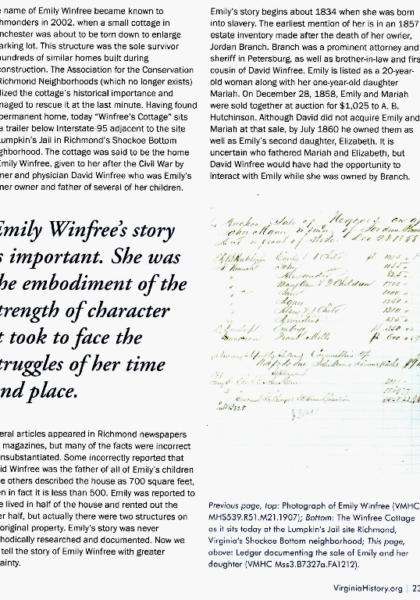 e name of Emily Winfree became known to
hmonders in 2002, when a small cottage in
nchester was about to be torn down to enlarge
arking lot. This structure was the sole survivor
undreds of similar homes built during
construction. The Association for the Conservation
Richmond Neighborhoods (which no longer exists)
lized the cottage's historical importance and
naged to rescue it at the last minute. Having found
permanent home, today "Winfree's Cottage" sits
a trailer below Interstate-95 adjacent to the site
umpkin's Jail in Richmond's Shockoe Bottom
ghborhood. The cottage was said to be the home
Emily Winfree, given to her after the Civil War by
ner and physician David Winfree who was Emily's
mer owner and father of several of her children.
Emily Winfree's story
s important. She was
he embodiment of the
trength of character
t took to face the
truggles of her time
nd place.
eral articles appeared in Richmond newspapers
magazines, but many of the facts were incorrect
nsubstantiated. Some incorrectly reported that
id Winfree was the father of all of Emily's children
e others described the house as 700 square feet,
en in fact it is less than 500. Emily was reported to
e lived in half of the house and rented out the
er half, but actually there were two structures on
original property. Emily's story was never
hodically researched and documented. Now we
tell the story of Emily Winfree with greater
ainty.
Emily's story begins about 1834 when she was born
into slavery. The earliest mention of her is in an 1857
estate inventory made after the death of her owner,
Jordan Branch. Branch was a prominent attorney and
sheriff in Petersburg, as well as brother-in-law and first
cousin of David Winfree. Emily is listed as a 20-year-
old woman along with her one-year-old daughter
Mariah. On December 28, 1858, Emily and Mariah
were sold together at auction for $1,025 to A. B.
Hutchinson. Although David did not acquire Emily and
Mariah at that sale, by July 1860 he owned them as
well as Emily's second daughter, Elizabeth. It is
uncertain who fathered Mariah and Elizabeth, but
David Winfree would have had the opportunity to
interact with Emily while she was owned by Branch.
Previous page, top: Photograph of Emily Winfree (VMHC
MHS539.R51.M21.1907); Bottom: The Winfree Cottage
as it sits today at the Lumpkin's Jail site Richmond,
Virginia's Shockoe Bottom neighborhood; This page,
above: Ledger documenting the sale of Emily and her
daughter (VMHC Mss3.B7327a.FA1212).
VirginiaHistory.org | 23